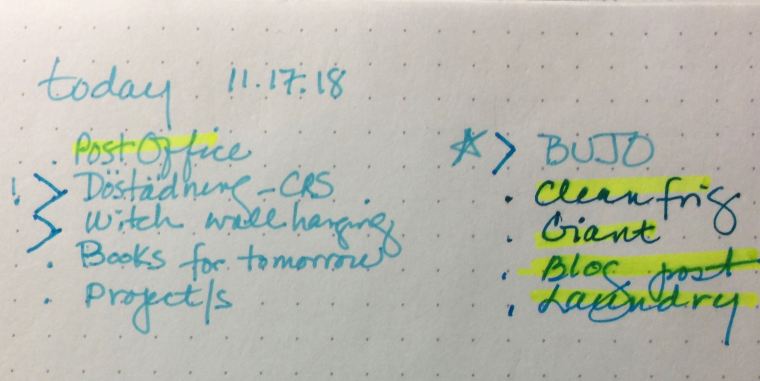 today 11.17.18
. Post Office
! > Döstädning - CRS
> Witch wall hanging
. Books for tomorrow
. Project/s
☆ > BUJO
. Clean frig
. Giant
. Blog post
. Laundry